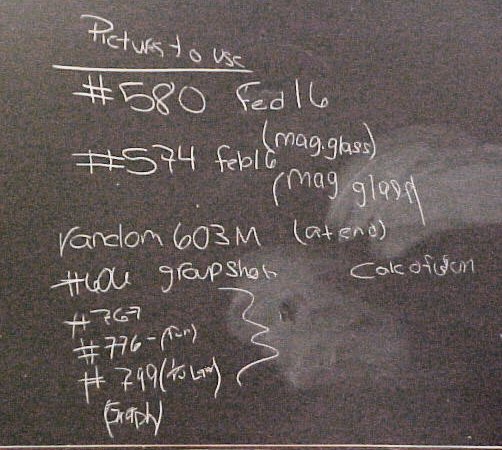 Pictures to use
#580 Fed 16
(mag.glass)
#574 feb16
(mag glass)
random 603M (at end)
group shot
#767
#776-
#799
(Graph)